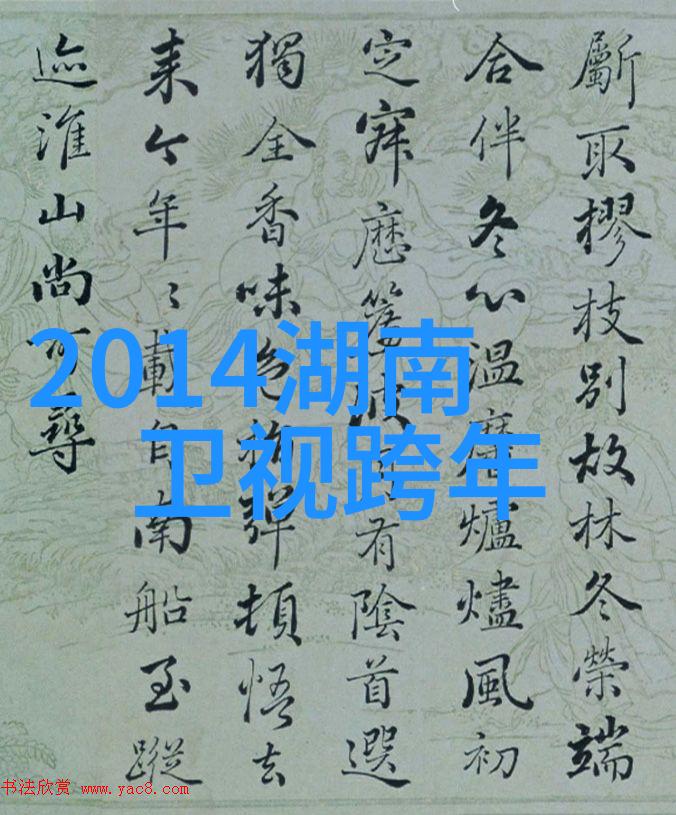 斸取樛枝别故林冬榮端
合伴冬心温爐燼風初
定有陰首選
獨全香味色彈頓悟去
来今年〻載自南船至蹤
迹淮山尚可尋
2014湖南
卫视跨年
书法欣赏 www.yac8.com